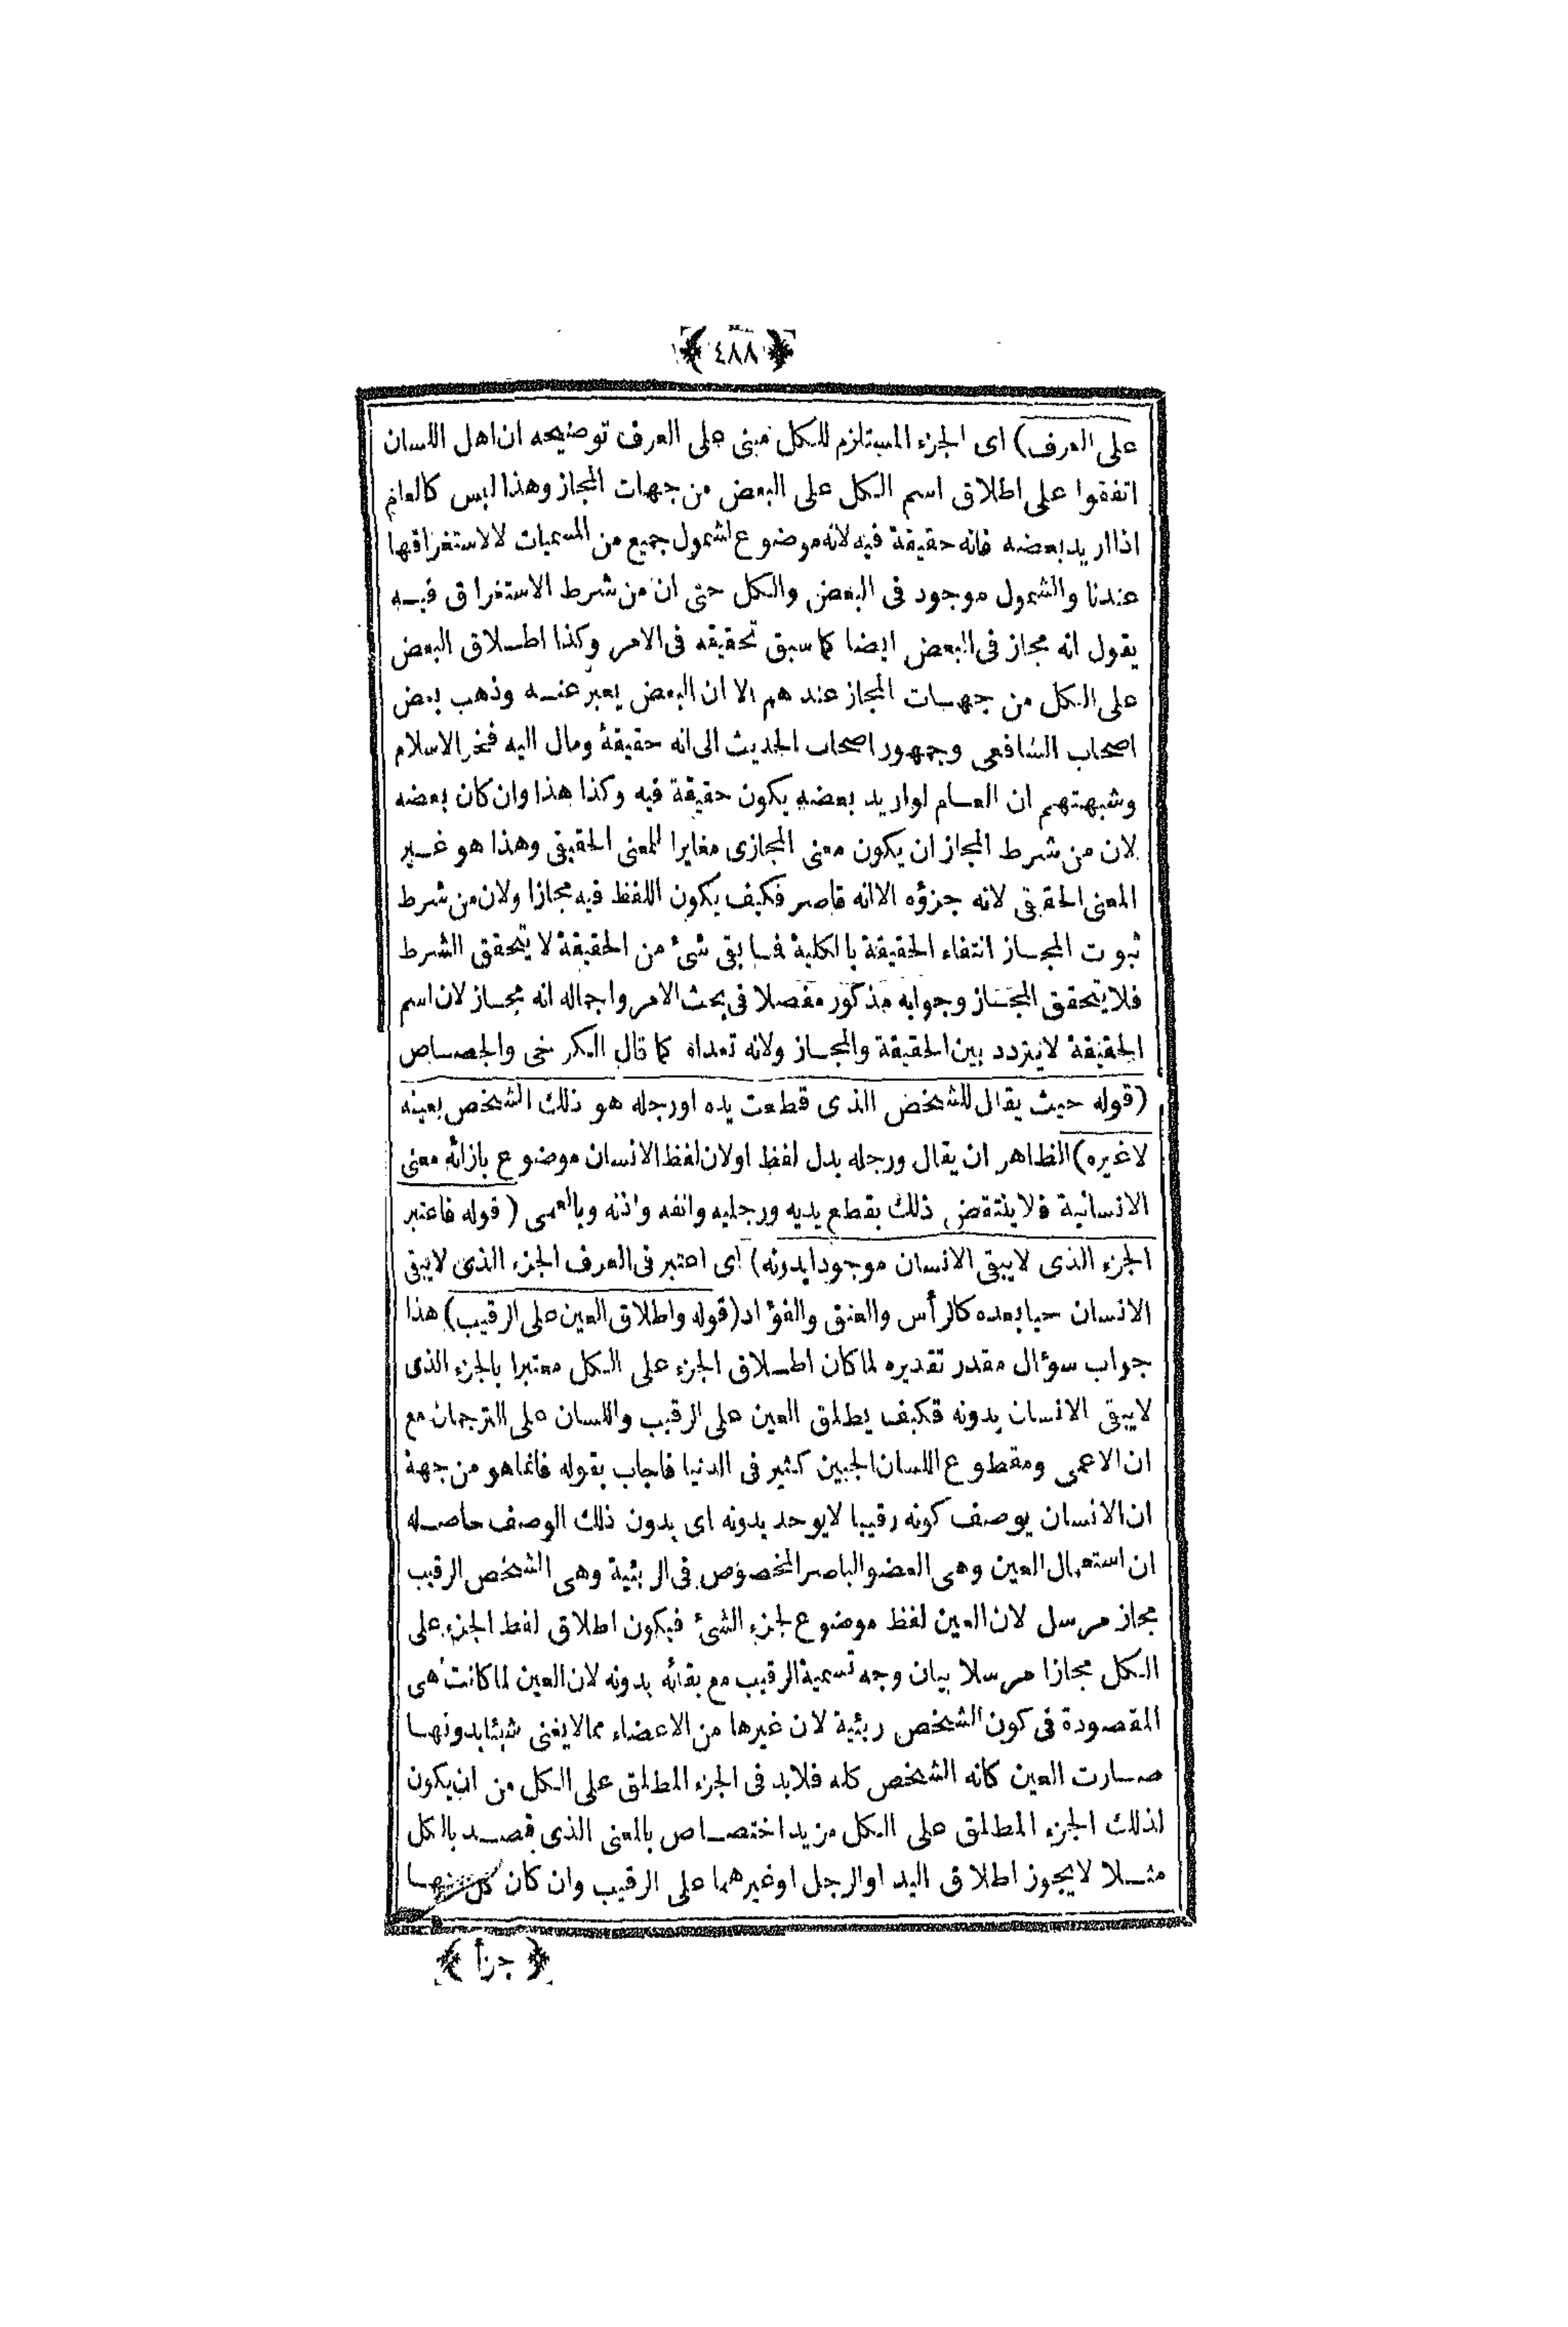 ﴿ ٤٨٨ ﴾
على العرف) اى الجزء المستلزم للكل مبنى على العرف توضيحه ان اهل اللسان
اتفقوا على اطلاق اسم الكل على البعض من جهات المجاز وهذا ليس كالعام
اذا اريد بعضه فانه حقيقة فيه لانه موضوع لشمول جميع من المسميات لا لاستغراقها
عندنا والشمول موجود فى البعض والكل حتى ان من شرط الاستغراق فيه
يقول انه مجاز فى البعض ايضا كما سبق تحقيقه فى الامر وكذا اطلاق البعض
على الكل من جهات المجاز عندهم الا ان البعض يعبر عنه وذهب بعض
اصحاب الشافعى وجمهور اصحاب الحديث الى انه حقيقة ومال اليه فخر الاسلام
وشبهتهم ان العام لو اريد بعضه يكون حقيقة فيه وكذا هذا وان كان بعضه
لان من شرط المجاز ان يكون معنى المجازى مغايرا للمعنى الحقيقى وهذا هو غير
المعنى الحقيقى لانه جزؤه الا انه قاصر فكيف يكون اللفظ فيه مجازا ولان من شرط
ثبوت المجاز انتفاء الحقيقة بالكلية فما بقى شئ من الحقيقة لا يتحقق الشرط
فلا يتحقق المجاز وجوابه مذكور مفصلا فى بحث الامر واجماله انه مجاز لان اسم
الحقيقة لا يتردد بين الحقيقة والمجاز ولانه تعداه كما قال الكرخى والجصاص
(قوله حيث يقال للشخص الذى قطعت يده او رجله هو ذلك الشخص بعينه
لا غيره) الظاهر ان يقال ورجله بدل لفظ او لان لفظ الانسان موضوع بازائه معنى
الانسانية فلا ينتقض ذلك بقطع يديه ورجليه وانفه واذنه وبالعمى (قوله فاعتبر
الجزء الذى لا يبقى الانسان موجودا بدونه) اى اعتبر فى العرف الجزء الذى لا يبقى
الانسان حيا بعده كالرأس والعنق والفؤاد (قوله واطلاق العين على الرقيب) هذا
جواب سؤال مقدر تقديره لما كان اطلاق الجزء على الكل معتبرا بالجزء الذى
لا يبقى الانسان بدونه فكيف يطلق العين على الرقيب واللسان على الترجمان مع
ان الاعمى ومقطوع اللسان الجبين كثير فى الدنيا فاجاب بقوله فانما هو من جهة
ان الانسان يوصف كونه رقيبا لا يوجد بدونه اى بدون ذلك الوصف حاصله
ان استعمال العين وهى العضو الباصر المخصوص فى الربئية وهى الشخص الرقيب
مجاز مرسل لان العين لفظ موضوع لجزء الشئ فيكون اطلاق لفظ الجزء على
الكل مجازا مرسلا بيان وجه تسمية الرقيب مع بقائه بدونه لان العين لما كانت هى
المقصودة فى كون الشخص ربئية لان غيرها من الاعضاء مما لا يغنى شيئا بدونها
صارت العين كانه الشخص كله فلا بد فى الجزء المطلق على الكل من ان يكون
لذلك الجزء المطلق على الكل مزيد اختصاص بالمعنى الذى قصد بالكل
مثلا لا يجوز اطلاق اليد او الرجل او غيرهما على الرقيب وان كان كل منها
﴿ جزأ ﴾